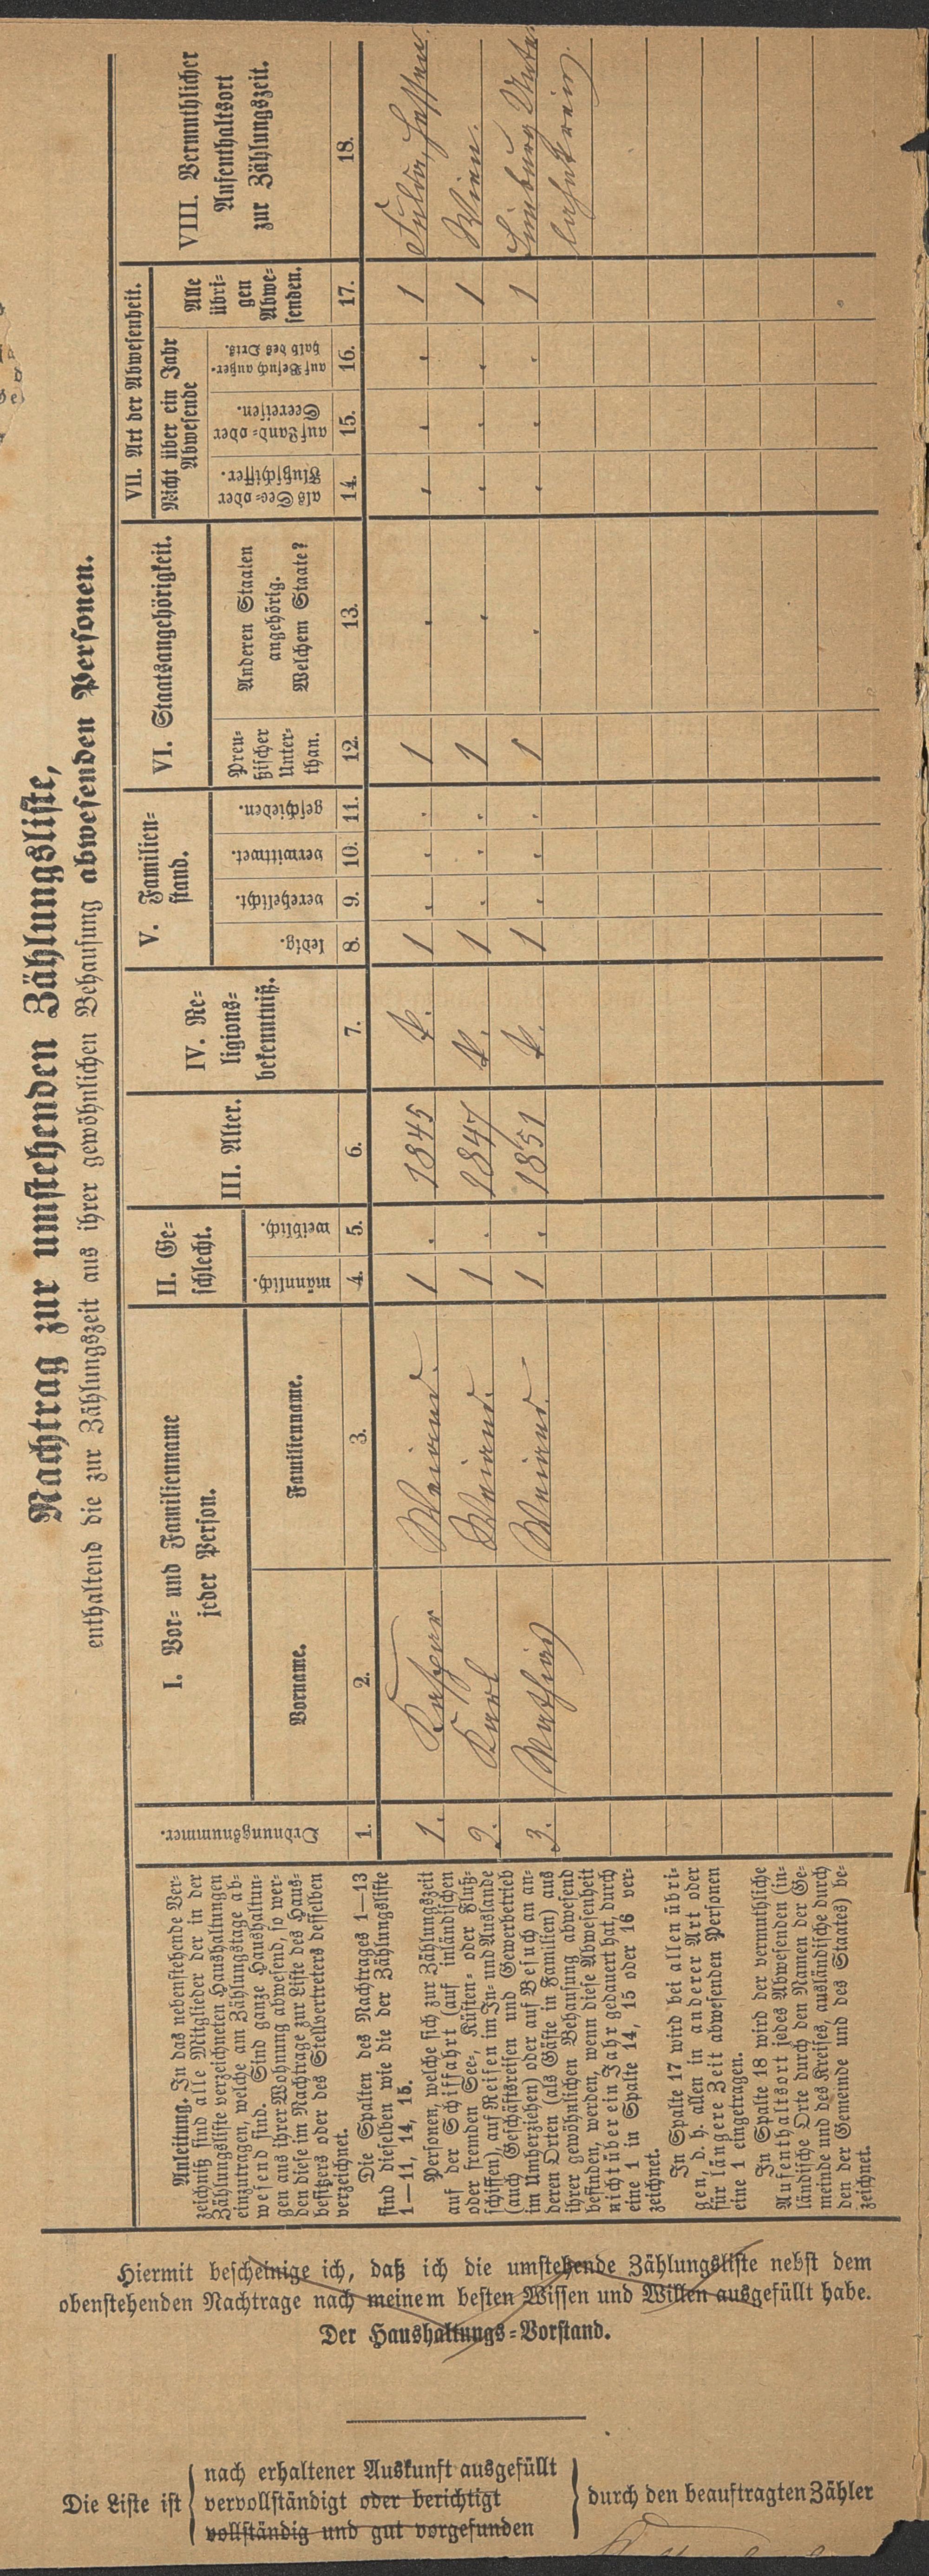 Nachtrag zur umstehenden Zählungsliste,
enthaltend die zur Zählungszeit aus ihrer gewöhnlichen Behausung abwesenden Personen.
Anleitung. In das nebenstehende Ver-
zeichniß sind alle Mitglieder der in der
Zählungsliste verzeichneten Haushaltungen
einzutragen, welche am Zählungstage ab-
wesend sind. Sind ganze Haushaltun-
gen aus ihrer Wohnung abwesend, so wer-
den diese im Nachtrage zur Liste des Haus-
besitzers oder des Stellvertreters desselben
verzeichnet.
Die Spalten des Nachtrages 1—13
sind dieselben wie die der Zählungsliste
1—11, 14, 15.
Personen, welche sich zur Zählungszeit
auf der Schiffahrt (auf inländischen
oder fremden See-, Küsten- oder Fluß-
schiffen), auf Reisen im In- und Auslande
(auch Geschäftsreisen und Gewerbetrieb
im Umherziehen) oder auf Besuch an an-
deren Orten (als Gäste in Familien) aus
ihrer gewöhnlichen Behausung abwesend
befinden, werden, wenn diese Abwesenheit
nicht über ein Jahr gedauert hat, durch
eine 1 in Spalte 14, 15 oder 16 ver-
zeichnet.
In Spalte 17 wird bei allen übri-
gen, d. h. allen in anderer Art oder
für längere Zeit abwesenden Personen
eine 1 eingetragen.
In Spalte 18 wird der vermuthliche
Aufenthaltsort jedes Abwesenden (in-
ländische Orte durch den Namen der Ge-
meinde und des Kreises, ausländische durch
den der Gemeinde und des Staates) be-
zeichnet.
Ordnungsnummer.
1.
I. Vor- und Familienname
jeder Person.
Vorname.
2.
Familienname.
3.
II. Ge-
schlecht.
männlich.
4.
weiblich.
5.
III. Alter.
6.
IV. Re-
ligions-
bekenntniß.
7.
V. Familien-
stand.
ledig.
8.
verehelicht.
9.
verwittwet.
10.
geschieden.
11.
VI. Staatsangehörigkeit.
Preu-
ßischer
Unter-
than.
12.
Anderen Staaten
angehörig.
Welchem Staate?
13.
VII. Art der Abwesenheit.
Nicht über ein Jahr
Abwesende
als See- oder
Flußschiffer.
14.
auf Land- oder
Seereisen.
15.
auf Besuch außer-
halb des Orts.
16.
Alle
übri-
gen
Abwe-
senden.
17.
VIII. Vermuthlicher
Aufenthaltsort
zur Zählungszeit.
18.
1. Kaspar Weiand. 1 . 1845 k. 1 . . . 1 . . . . 1 Fulda, Hessen.
2. Karl Weiand. 1 . 1847 k. 1 . . . 1 . . . . 1 Wien.
3. Mathias Weiand. 1 . 1851 k. 1 . . . 1 . . . . 1 Limburg Unter
lahnkreis.
Hiermit bescheinige ich, daß ich die umstehende Zählungsliste nebst dem
obenstehenden Nachtrage nach meinem besten Wissen und Willen ausgefüllt habe.
Der Haushaltungs-Vorstand.
Die Liste ist
nach erhaltener Auskunft ausgefüllt
vervollständigt oder berichtigt
vollständig und gut vorgefunden
durch den beauftragten Zähler